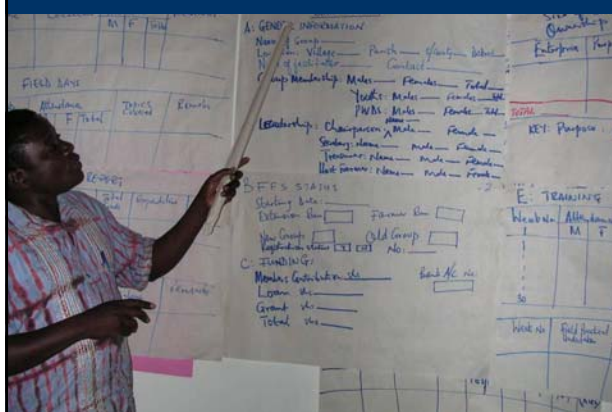 M F Total
FIELD DAYS
Attendance
F Total
TOPICS Covered
Remarks
REPORT
Remarks
A: GENERAL INFORMATION
Name of Group
Location: Village Parish
Name of facilitator Contact
Group Membership: Males Females Total
Youths: Males Females
PWDs: Males Females
Leadership: Chairperson Name Male Female
Secretary: Name Male Female
Treasurer: Name Male Female
Host Farmer: Name Male Female
B. FFS STATUS
Starting Date:
Extension Run Farmer Run
New Group Old Group
Registration status Y N No:
C: FUNDING:
Members Contribution shs Bank A/C No:
Loan shs
Grant shs
Total shs
Ownership
Enterprise
TOTAL
KEY: Purpose:
E: TRAINING
Week No Attendance
M F
1
30
Week No Field Practical Undertaken